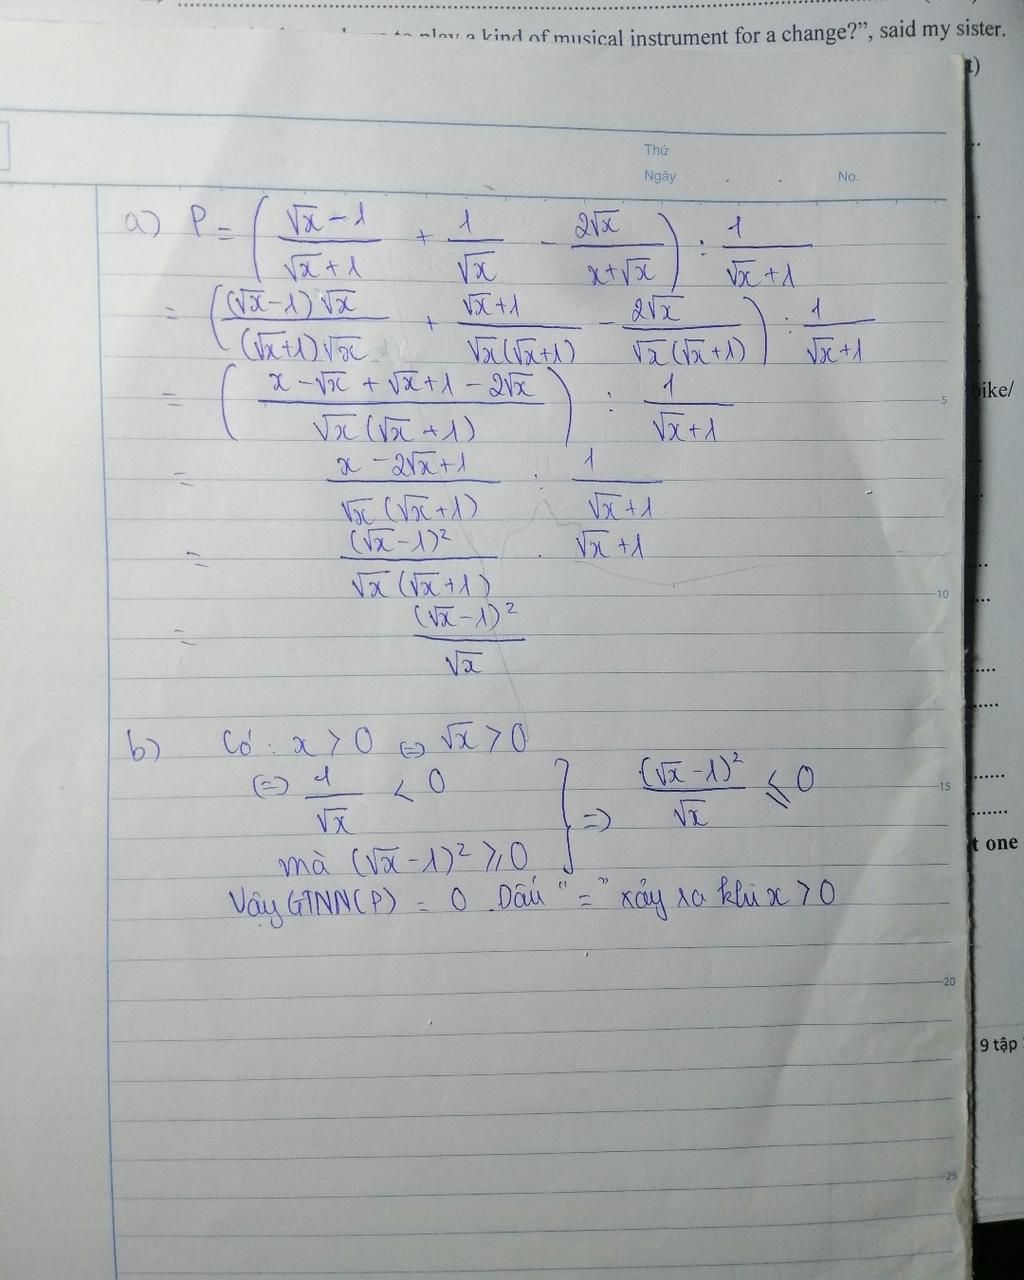 a kind of musical instrument for a change?”, said my sister.
t)
Thứ
Ngày . . No.
a) P = ( (√x − 1)/(√x + 1) + 1/√x − 2√x/(x+√x) ) : 1/(√x + 1)
= ( (√x−1)√x/((√x+1)√x) + (√x+1)/(√x(√x+1)) − 2√x/(√x(√x+1)) ) : 1/(√x+1)
= ( (x − √x + √x + 1 − 2√x)/(√x(√x + 1)) ) : 1/(√x+1)
5
ike/
= (x − 2√x + 1)/(√x(√x+1)) : 1/(√x + 1)
= (√x − 1)²/(√x(√x+1)) . √x + 1
10
= (√x − 1)²/√x
b) Có : x > 0 ⇔ √x > 0
⇔ 1/√x < 0
mà (√x − 1)² ⩾ 0 } => (√x − 1)²/√x ⩽ 0
15
t one
Vậy GTNN(P) = 0 . Dấu " = " xảy ra khi x > 0
20
9 tập
25